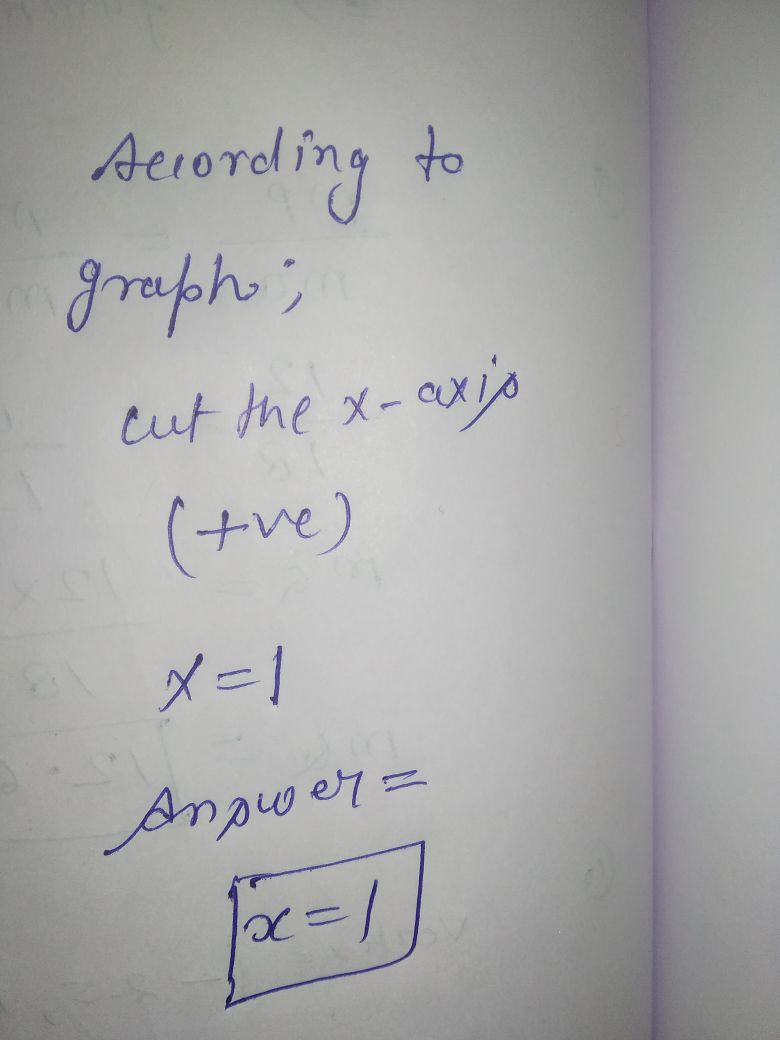 According to
graph;
cut the x-axis
(+ve)
x=1
Answer=
x=1